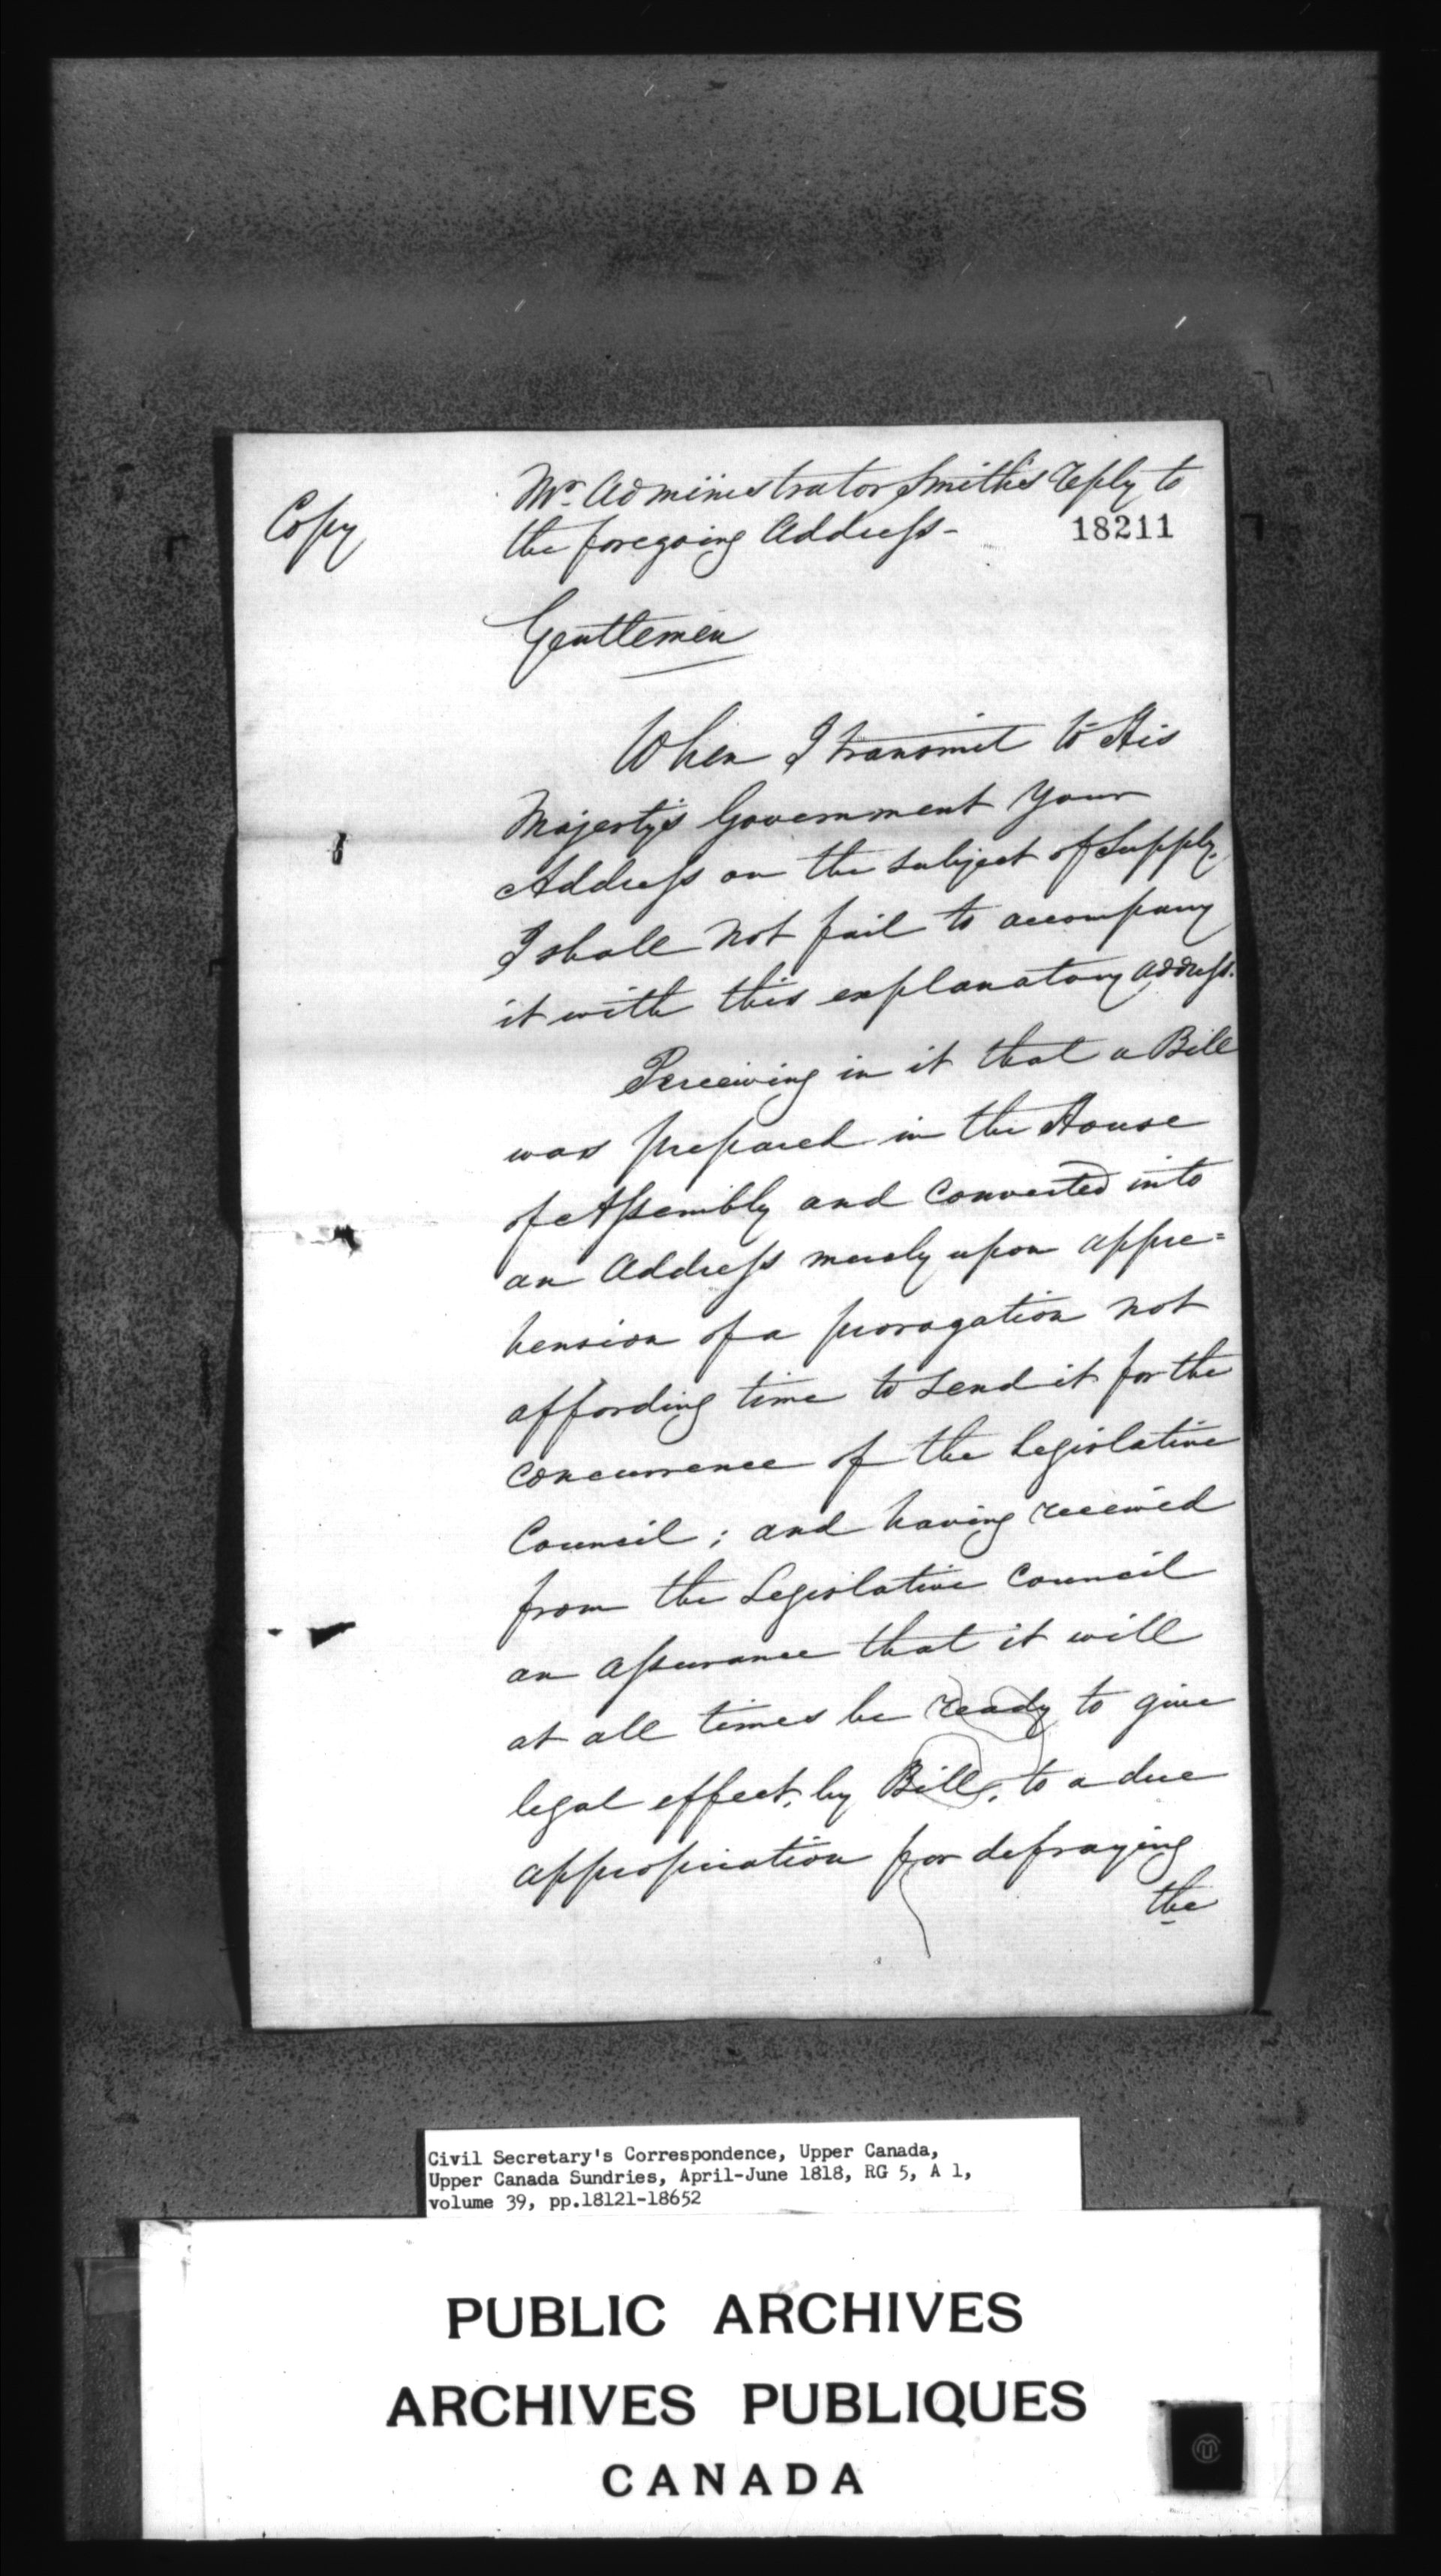 Copy
Mr. Administrator Smith's reply to
the foregoing Address-
18211
Gentlemen
When I transmit to His
Majesty's Government your
Address on the subject of Supply.
I shall not fail to accompany
it with this explanatory address.
Perceiving in it that a Bill
was prepared in the House
of Assembly and converted into
an Address merely upon appre=
hension of a prorogation not
affording time to send it for the
concurrence of the Legislative
Council; and having received
from the Legislative Council
an assurance that it will
at all times be ready to give
legal effect, by Bill, to a due
appropriation for defraying
the
Civil Secretary's Correspondence, Upper Canada,
Upper Canada Sundries, April-June 1818, RG 5, A 1,
volume 39, pp.18121-18652
PUBLIC ARCHIVES
ARCHIVES PUBLIQUES
CANADA